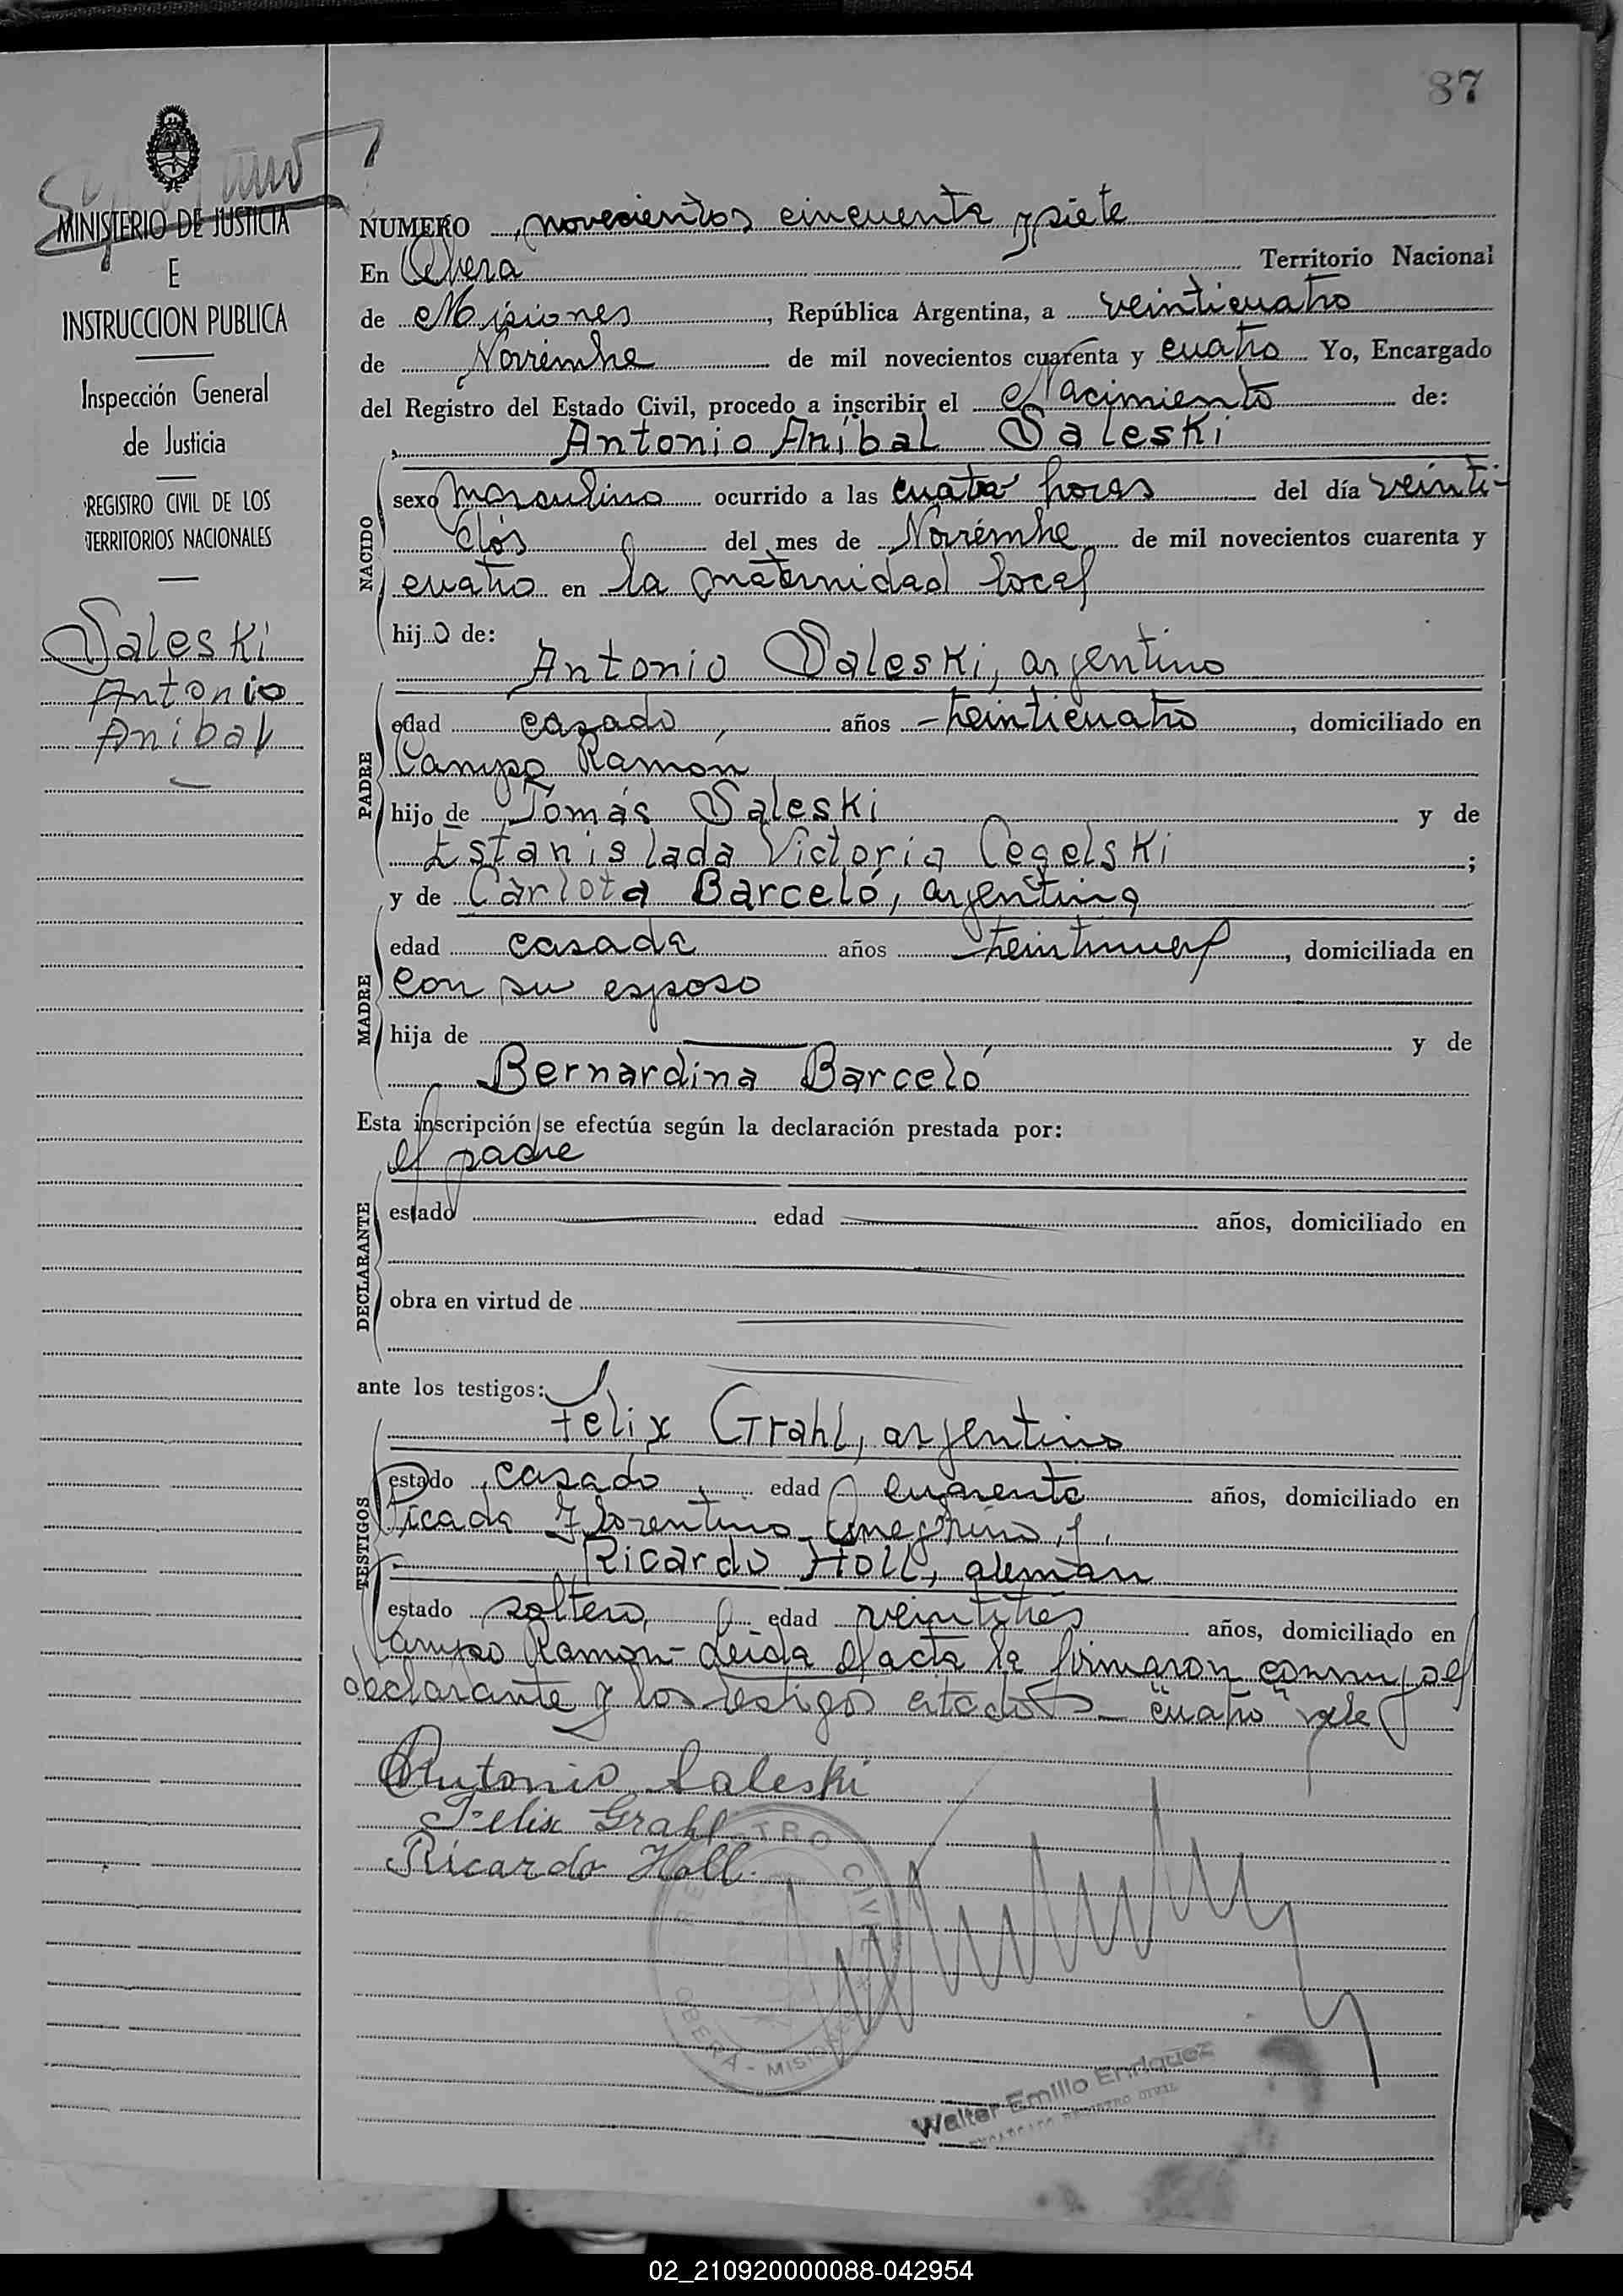 87
MINISTERIO DE JUSTICIA
E
INSTRUCCION PUBLICA
Inspección General
de Justicia
REGISTRO CIVIL DE LOS
TERRITORIOS NACIONALES
Saleski
Antonio
Anibal
NUMERO novecientos cincuenta y siete
En Overa Territorio Nacional
de Misiones, República Argentina, a veinticuatro
de Noviembre de mil novecientos cuarenta y cuatro Yo, Encargado
del Registro del Estado Civil, procedo a inscribir el Nacimiento de:
Antonio Aníbal Saleski
NACIDO
sexo masculino ocurrido a las cuatro horas del día veinti-
dós del mes de Noviembre de mil novecientos cuarenta y
cuatro en la maternidad local
hijo de:
Antonio Saleski, argentino
PADRE
edad casado, años treinticuatro, domiciliado en
Campo Ramón
hijo de Tomás Saleski y de
Estanislada Victoria Cegelski;
y de Carlota Barceló, argentina
MADRE
edad casada años treintinueve, domiciliada en
con su esposo
hija de y de
Bernardina Barceló
Esta inscripción se efectúa según la declaración prestada por:
el padre
DECLARANTE
estado edad años, domiciliado en
obra en virtud de
ante los testigos:
Felix Grahl, argentino
TESTIGOS
estado casado, edad cuarenta años, domiciliado en
Picada Florentino Ameghino y
Ricardo Holl, alemán
estado soltero, edad veintitrés años, domiciliado en
Campo Ramon - Leida el acta la firmaron conmigo el
declarante y los testigos citados - "cuatro" vale
Antonio Saleski
Felix Grahl
Ricardo Holl.
REGISTRO CIVIL
OBERA - MISIONES
Walter Emilio Enriquez
ENCARGADO REGISTRO CIVIL
02_210920000088-042954